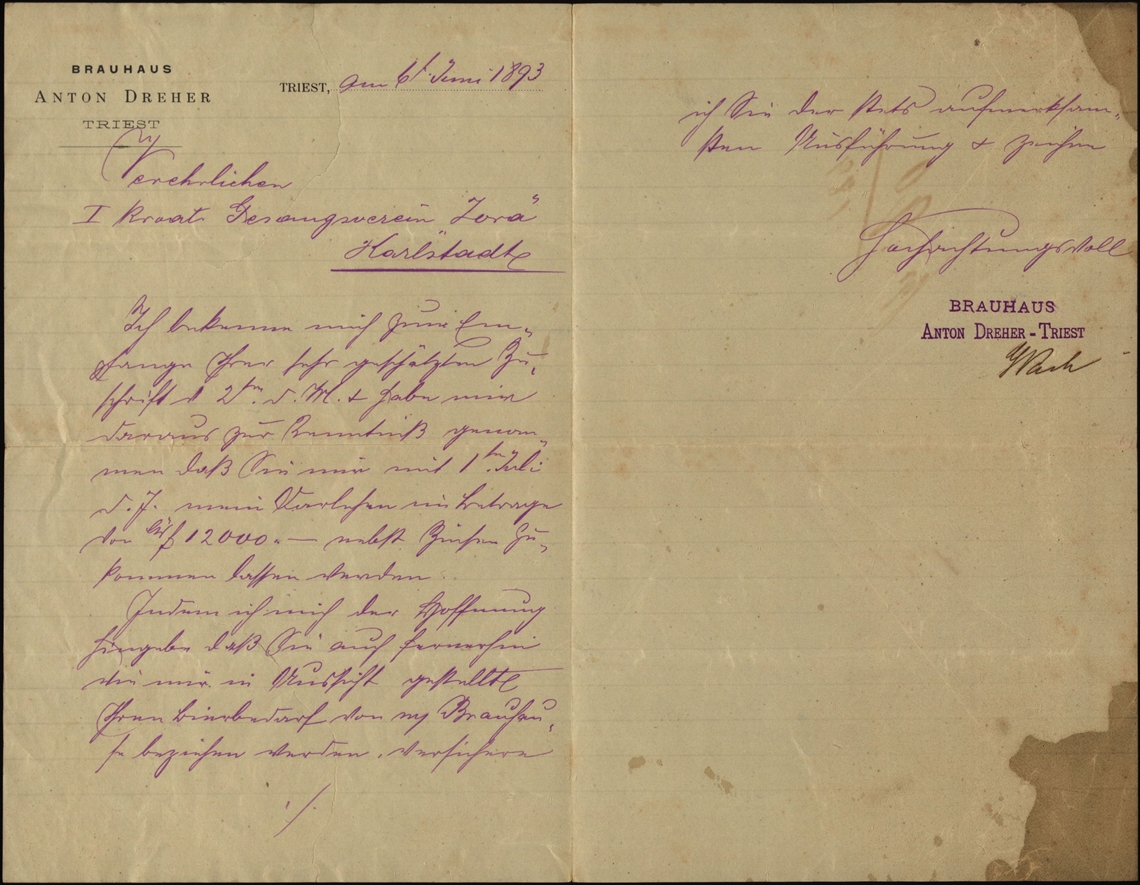 BRAUHAUS
ANTON DREHER
TRIEST
TRIEST, am 6t Juni 1893
Verehrlichen
I kroat. Gesangsverein "Zora"
Karlstadt
Ich bekenne mich zum Em-
pfange Ihrer sehr geschätzten Zu-
schrift v 2ten d. M. & habe mir
daraus zur Kenntniß genom-
men daß Sie mir mit 1ten Juli
d. J. mein Darlehen im Betrage
von f 12000.— nebst Zinsen zu-
kommen lassen werden.
Indem ich mich der Hoffnung
hingebe daß Sie auch fernerhin
wie mir in Aussicht gestellt
Ihren Bierbedarf von m/ Brauhau-
se beziehen werden, versichere
./.
ich Sie der stets aufmerksam-
sten Ausführung & zeichne
Hochachtungsvoll
BRAUHAUS
ANTON DREHER-TRIEST